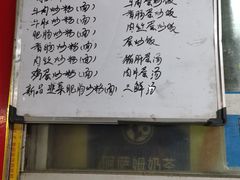 牛肉炒粉(面)
牛肚炒粉(面)
肥肠炒粉(面)
香肠炒粉(面)
肉丝炒粉(面)
鸡蛋炒粉(面)
新品 韭菜肥肠炒粉(面)
牛肉蛋炒饭
香肠蛋炒饭
肉丝蛋炒饭
蛋炒饭
猪肝汤
肉片蛋汤
三鲜汤
阿萨姆奶茶